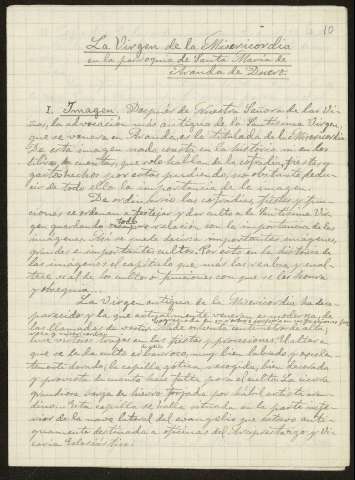 10
La Virgen de la Misericordia
en la parroquia de Santa María de
Aranda de Duero.
I. Imagen. Después de Nuestra Señora de las Vi-
ñas, la advocación más antigua de la Santísima Virgen,
que se venera en Aranda es la titulada de la Misericordia.
De esta imagen nada consta en la historia ni en los
libros de cuentas, que solo hablan de la cofradía, fiestas y
gastos hechos por estas pudiendo, no obstante, dedu-
cir de todo ello la importancia de la imagen.
De ordinario las cofradías, fiestas y fun-
ciones se ordenan a festejar y dar culto a la Santísima Vir-
gen guardando todo relación con la importancia de las
imágenes. Así se puede decir a importantes imágenes,
grandes e importantes cultos. Por esto en la historia de
las imágenes el capítulo que más las realza y enal-
tece es el de los cultos o funciones con que se las honra
y obsequia.
La Virgen antigua de la Misericordia ha des-
aparecido y la que actualmente veneran es moderna, de
las llamadas de vestir, mide ochenta centímetros de alto,
luce vestidos en las fiestas y procesiones. El altar en
que se da la culto es barroco, muy bien labrado y
dorado; la capilla gótica, recogida, bien decorada
y provista de cuanto hace falta para el culto. La cierra
grandiosa verja de hierro forjada por hábil artista aran-
dino. Esta capilla se halla situada en la parte infe-
rior de la nave lateral del evangelio que estuvo anti-
guamente destinada a oficinas del Arciprestazgo y Vi-
caría Eclesiástica.